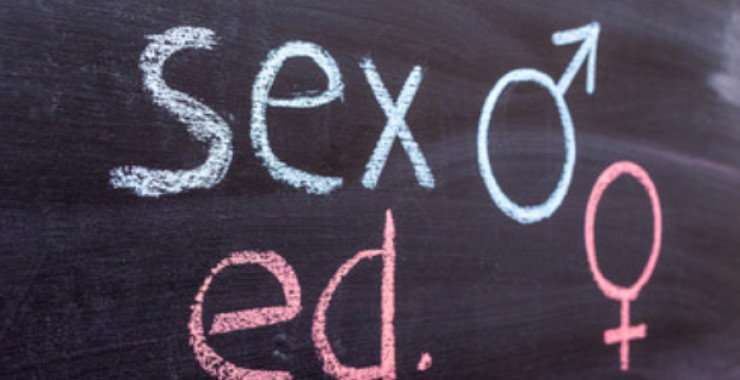 sex ♂
ed. ♀